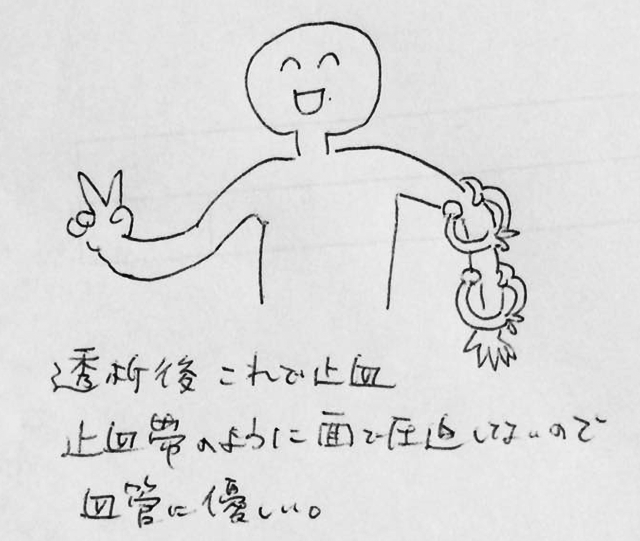 透析後これで止血
止血帯のように面で圧迫してないので
血管に優しい。